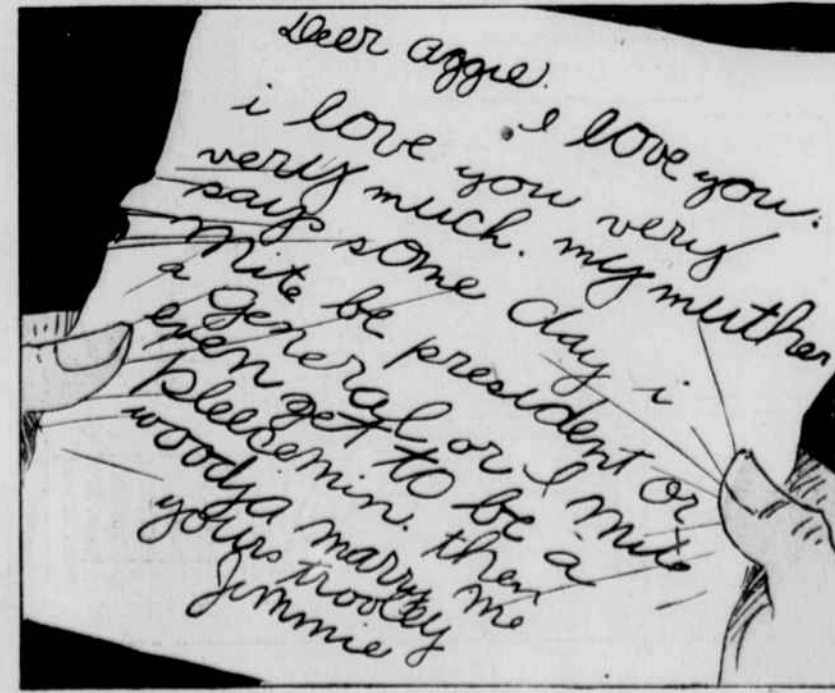 Deer aggie.
I love you.
i love you very
very much. my muther
says some day i
mite be president or
a general or I mite
even get to be a
pleecemin. then
woodja marry me
yours trooley
Jimmie